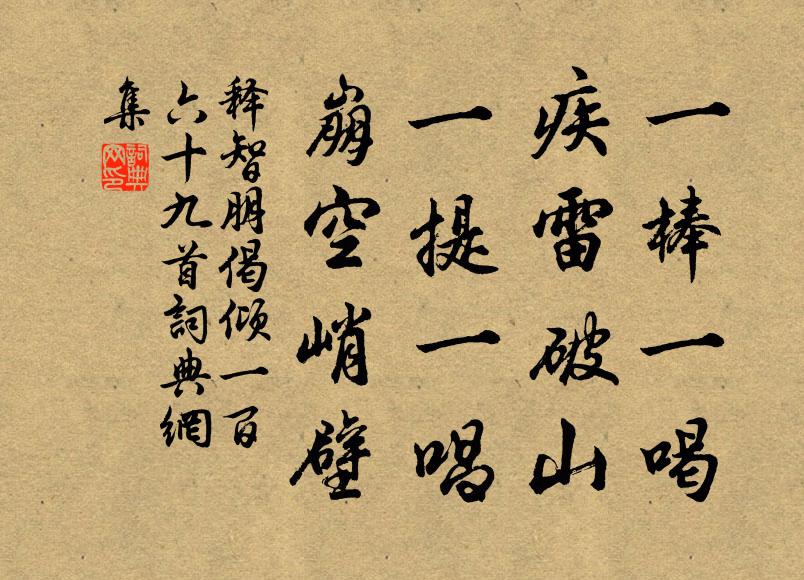 一棒一喝
疾雷破山
一提一唱
崩空峭壁
释智朋偈倾一百
六十九首詞典網
集
詞典
网印